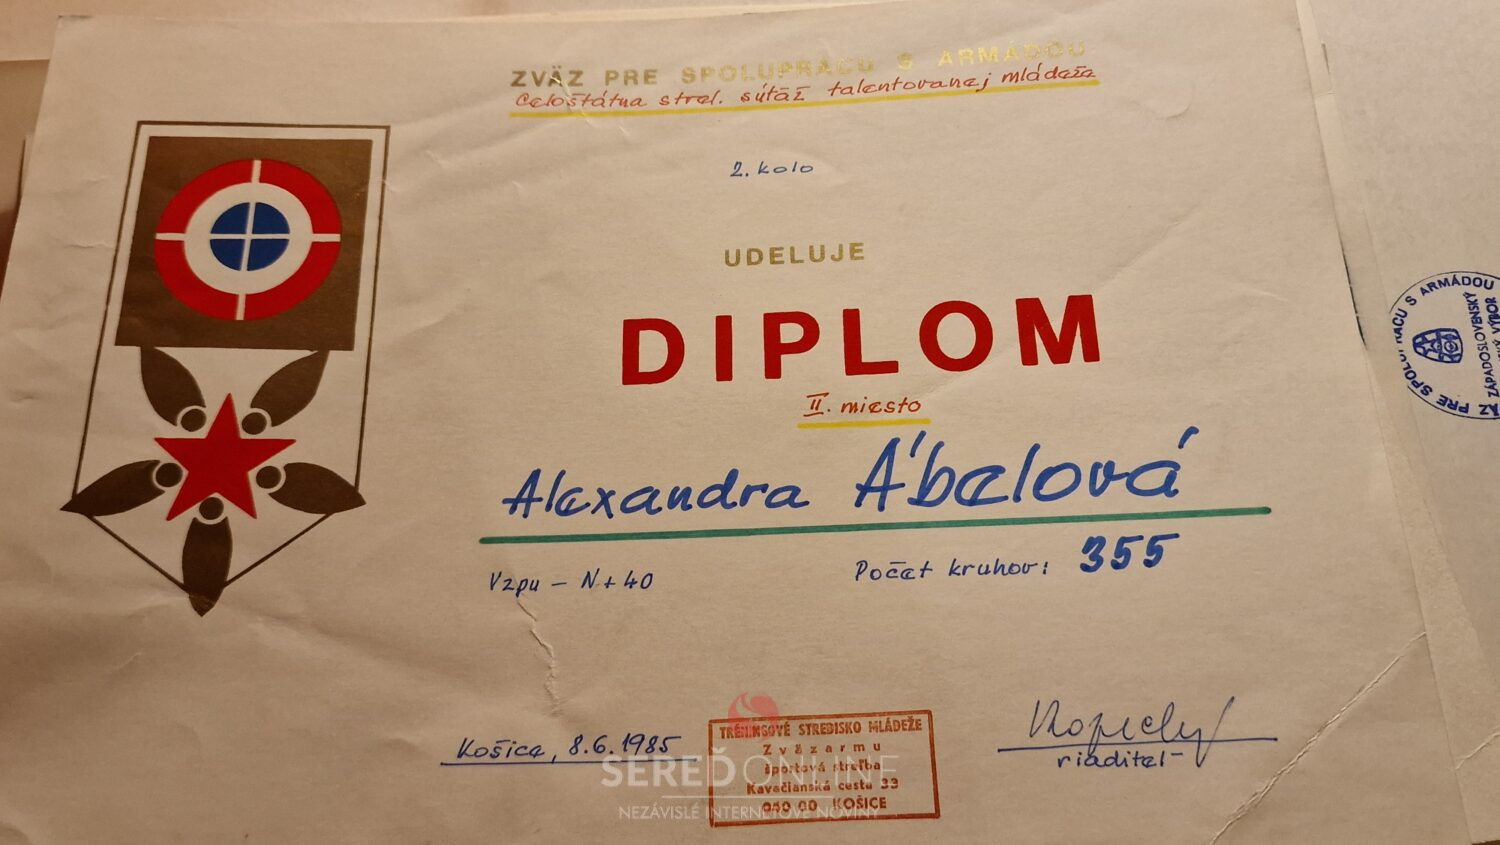 ZVÄZ PRE SPOLUPRÁCU S ARMÁDOU
Celoštátna strel. súťaž talentovanej mládeže
2. kolo
UDELUJE
DIPLOM
II. miesto
Alexandra Ábelová
Vzpu – N+40
Počet kruhov: 355
Košice, 8.6.1985
TRÉNINGOVÉ STREDISKO MLÁDEŽE
Zväzarmu
športová streľba
Kavečianská cesta 33
040 00 KOŠICE
riaditeľ
SEREĎONLINE
NEZÁVISLÉ INTERNETOVÉ NOVINY
PRE SPOLUPRÁCU S ARMÁDOU
ZÁPADOSLOVENSKÝ
VÝBOR